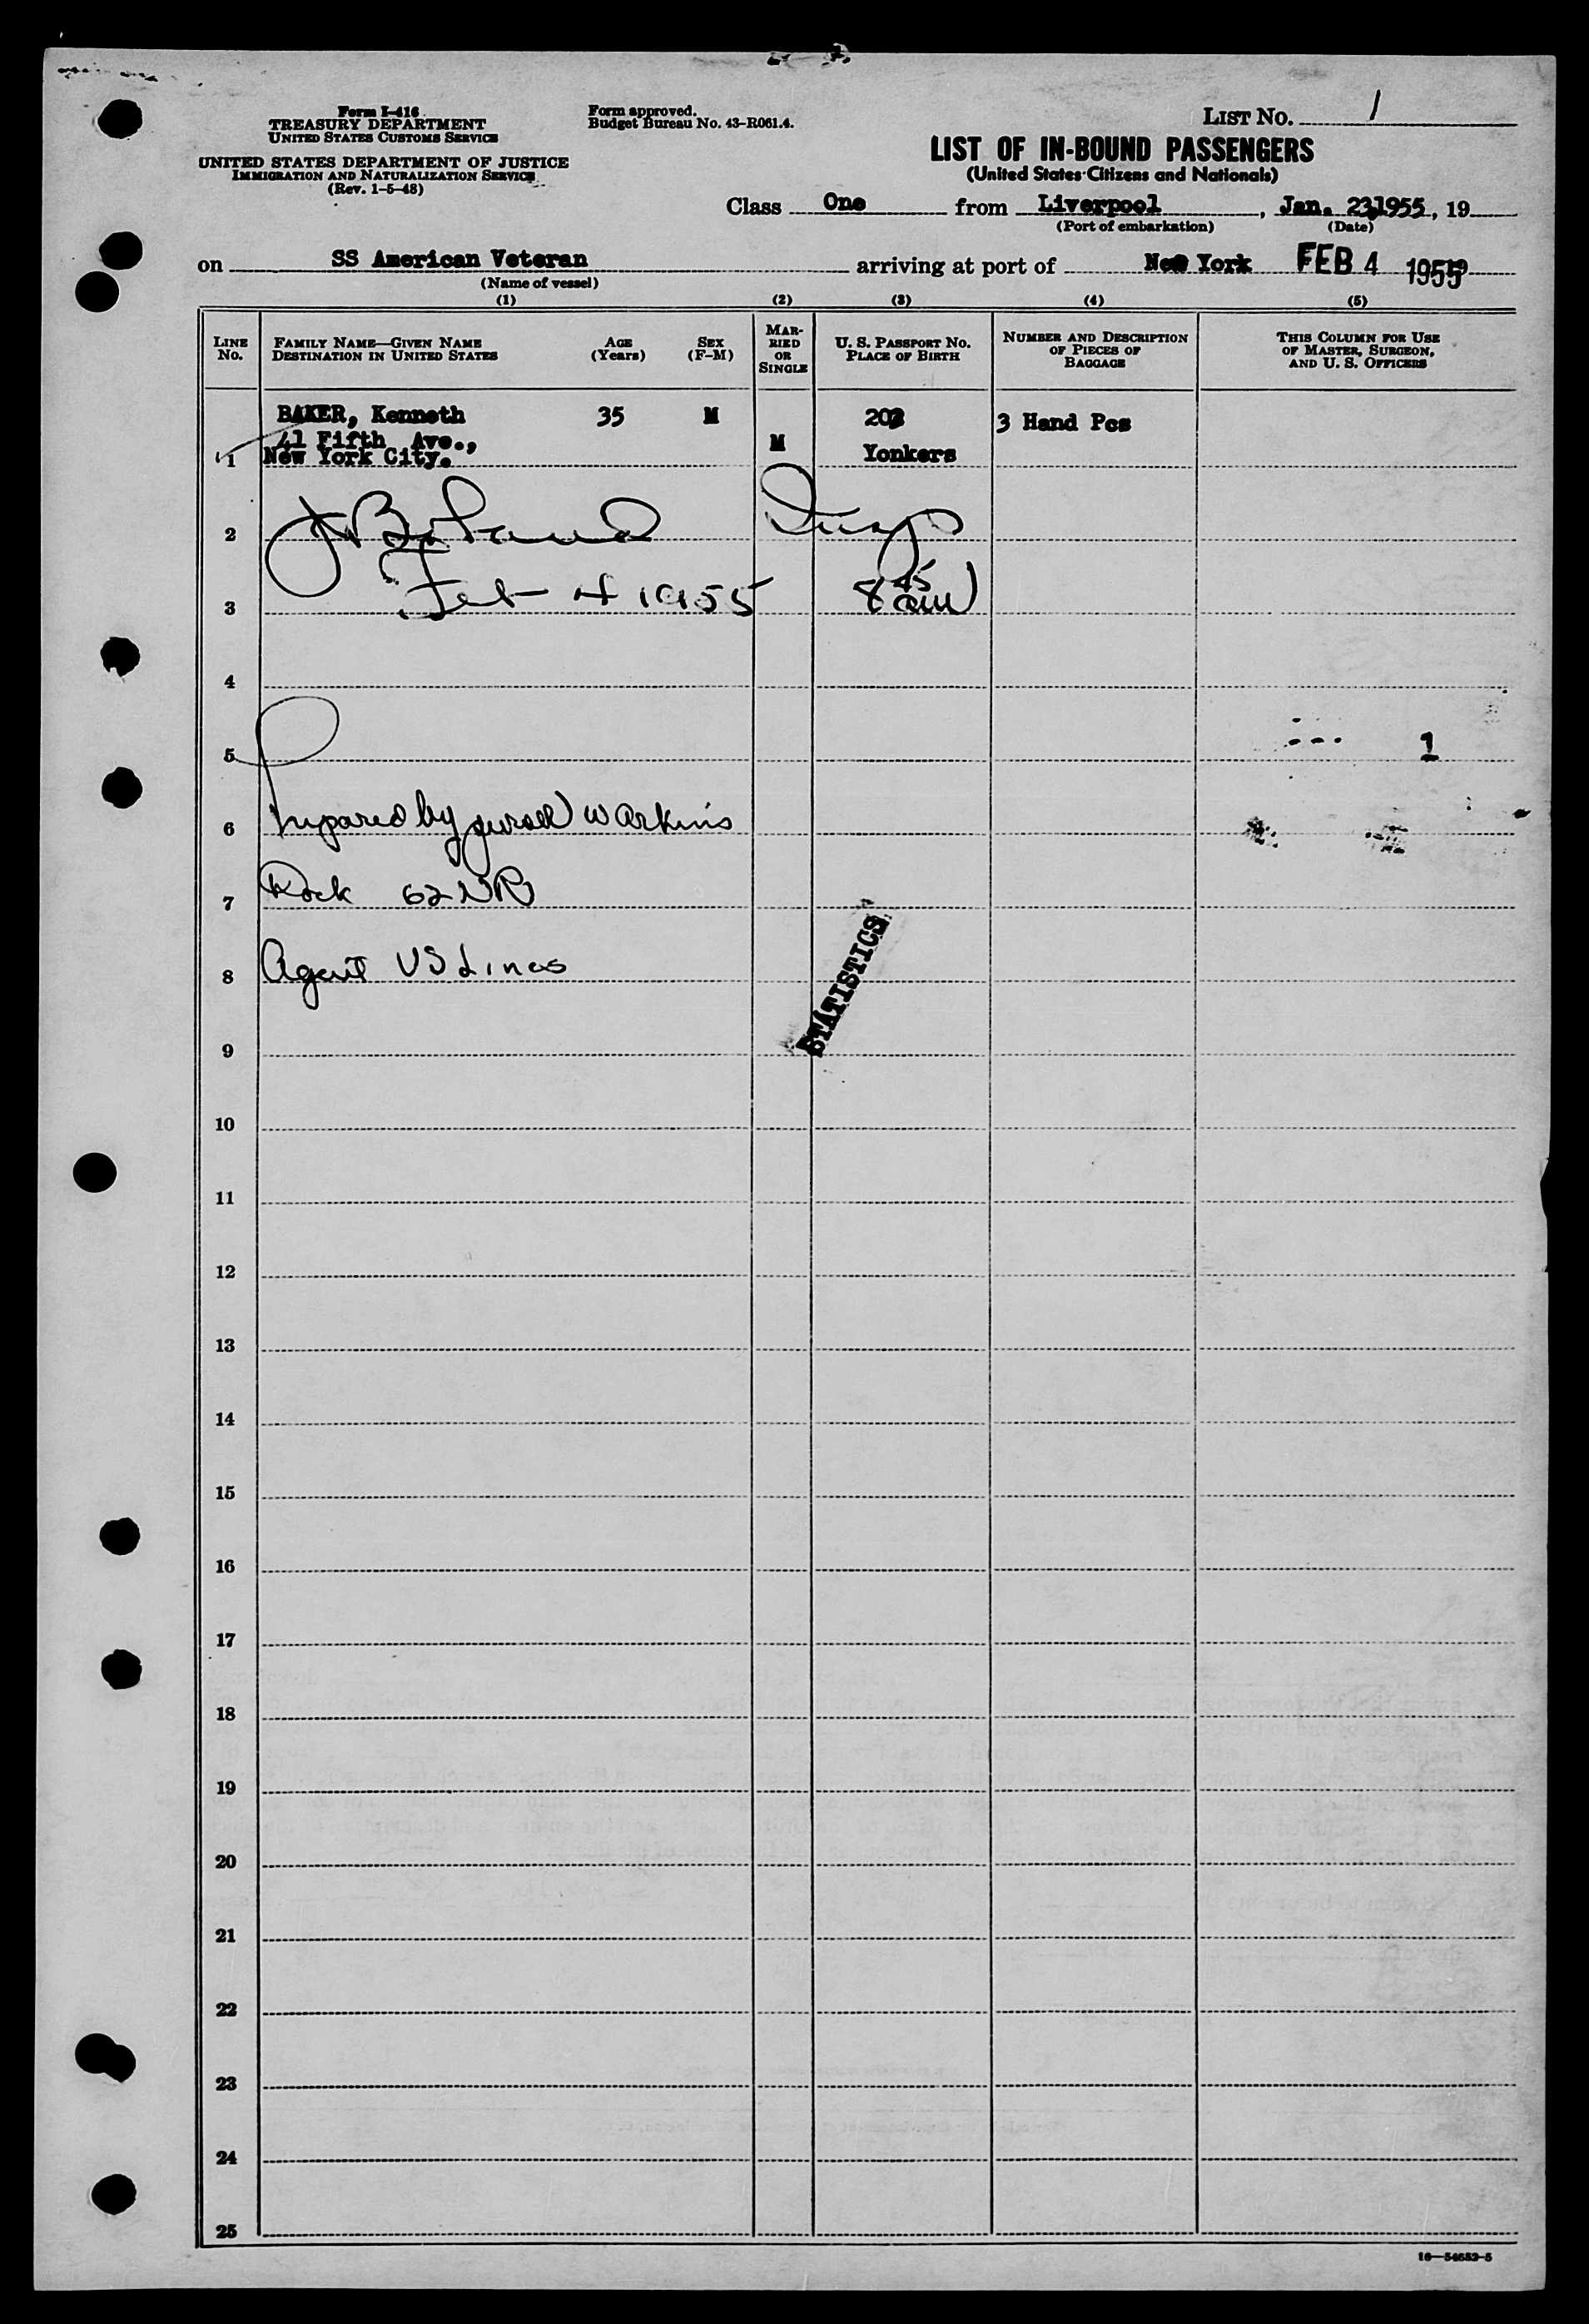 Form I-416
TREASURY DEPARTMENT
UNITED STATES CUSTOMS SERVICE
UNITED STATES DEPARTMENT OF JUSTICE
IMMIGRATION AND NATURALIZATION SERVICE
(Rev. 1-5-48)
Form approved.
Budget Bureau No. 43-R061.4.
LIST NO. 1
LIST OF IN-BOUND PASSENGERS
(United States Citizens and Nationals)
Class One from Liverpool, Jan. 23,1955, 19
(Port of embarkation) (Date)
on SS American Veteran arriving at port of New York FEB 4 1955
(Name of vessel)
(1) (2) (3) (4) (5)
LINE NO.
FAMILY NAME—GIVEN NAME
DESTINATION IN UNITED STATES
AGE (Years)
SEX (F-M)
MARRIED OR SINGLE
U. S. PASSPORT NO.
PLACE OF BIRTH
NUMBER AND DESCRIPTION OF PIECES OF BAGGAGE
THIS COLUMN FOR USE OF MASTER, SURGEON, AND U. S. OFFICERS
BAKER, Kenneth 35 M 3 Hand Pcs
41 Fifth Ave., M
1 New York City. Yonkers
2
3 Feb 4 1955 8 45 am
4
5 1
6 Prepared by
7 Dock 62 NR
8 Agent US Lines
STATISTICS
9
10
11
12
13
14
15
16
17
18
19
20
21
22
23
24
25
16—54652-5